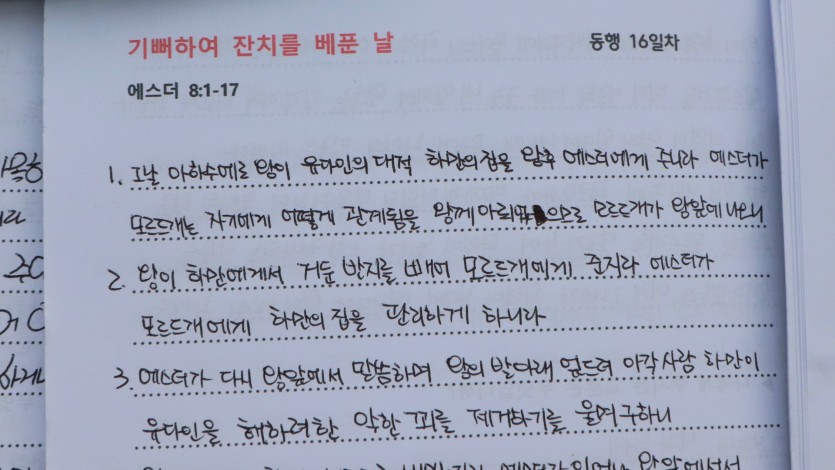 기뻐하여 잔치를 베푼 날
동행 16일차
에스더 8:1-17
1. 그날 아하수에로 왕이 유다인의 대적 하만의 집을 왕후 에스더에게 주니라 에스더가
모르드개는 자기에게 어떻게 관계됨을 왕께 아뢰 으므로 모르드개가 왕앞에 나오니
2. 왕이 하만에게서 거둔 반지를 빼어 모르드개에게 준지라 에스더가
모르드개에게 하만의 집을 관리하게 하니라
3. 에스더가 다시 왕앞에서 말씀하며 왕의 발아래 엎드려 아각사람 하만이
유다인을 해하려한 악한 꾀를 제거하기를 울며구하니